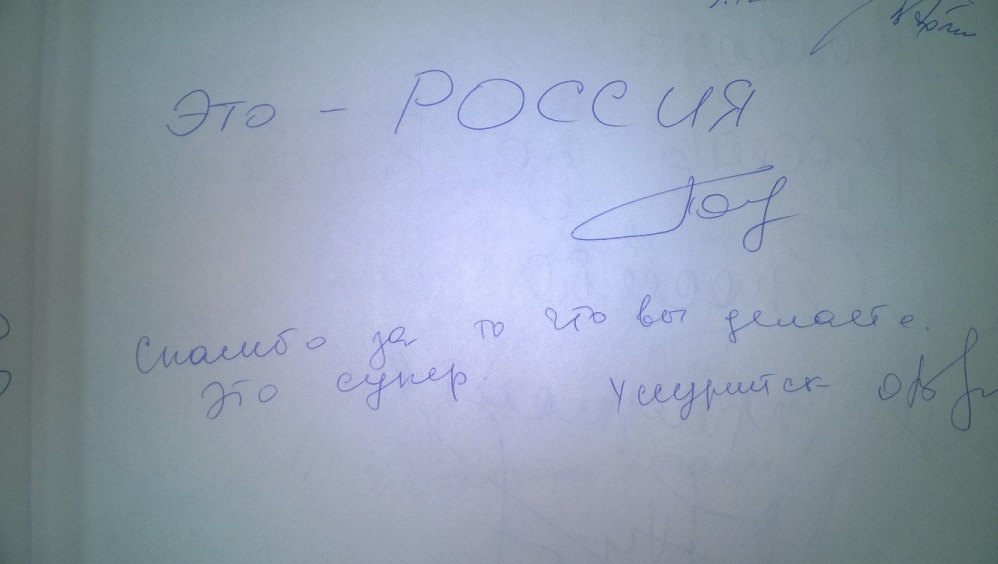 Это - РОССИЯ
Спасибо за то что вы делаете.
Это супер! Уссурийск